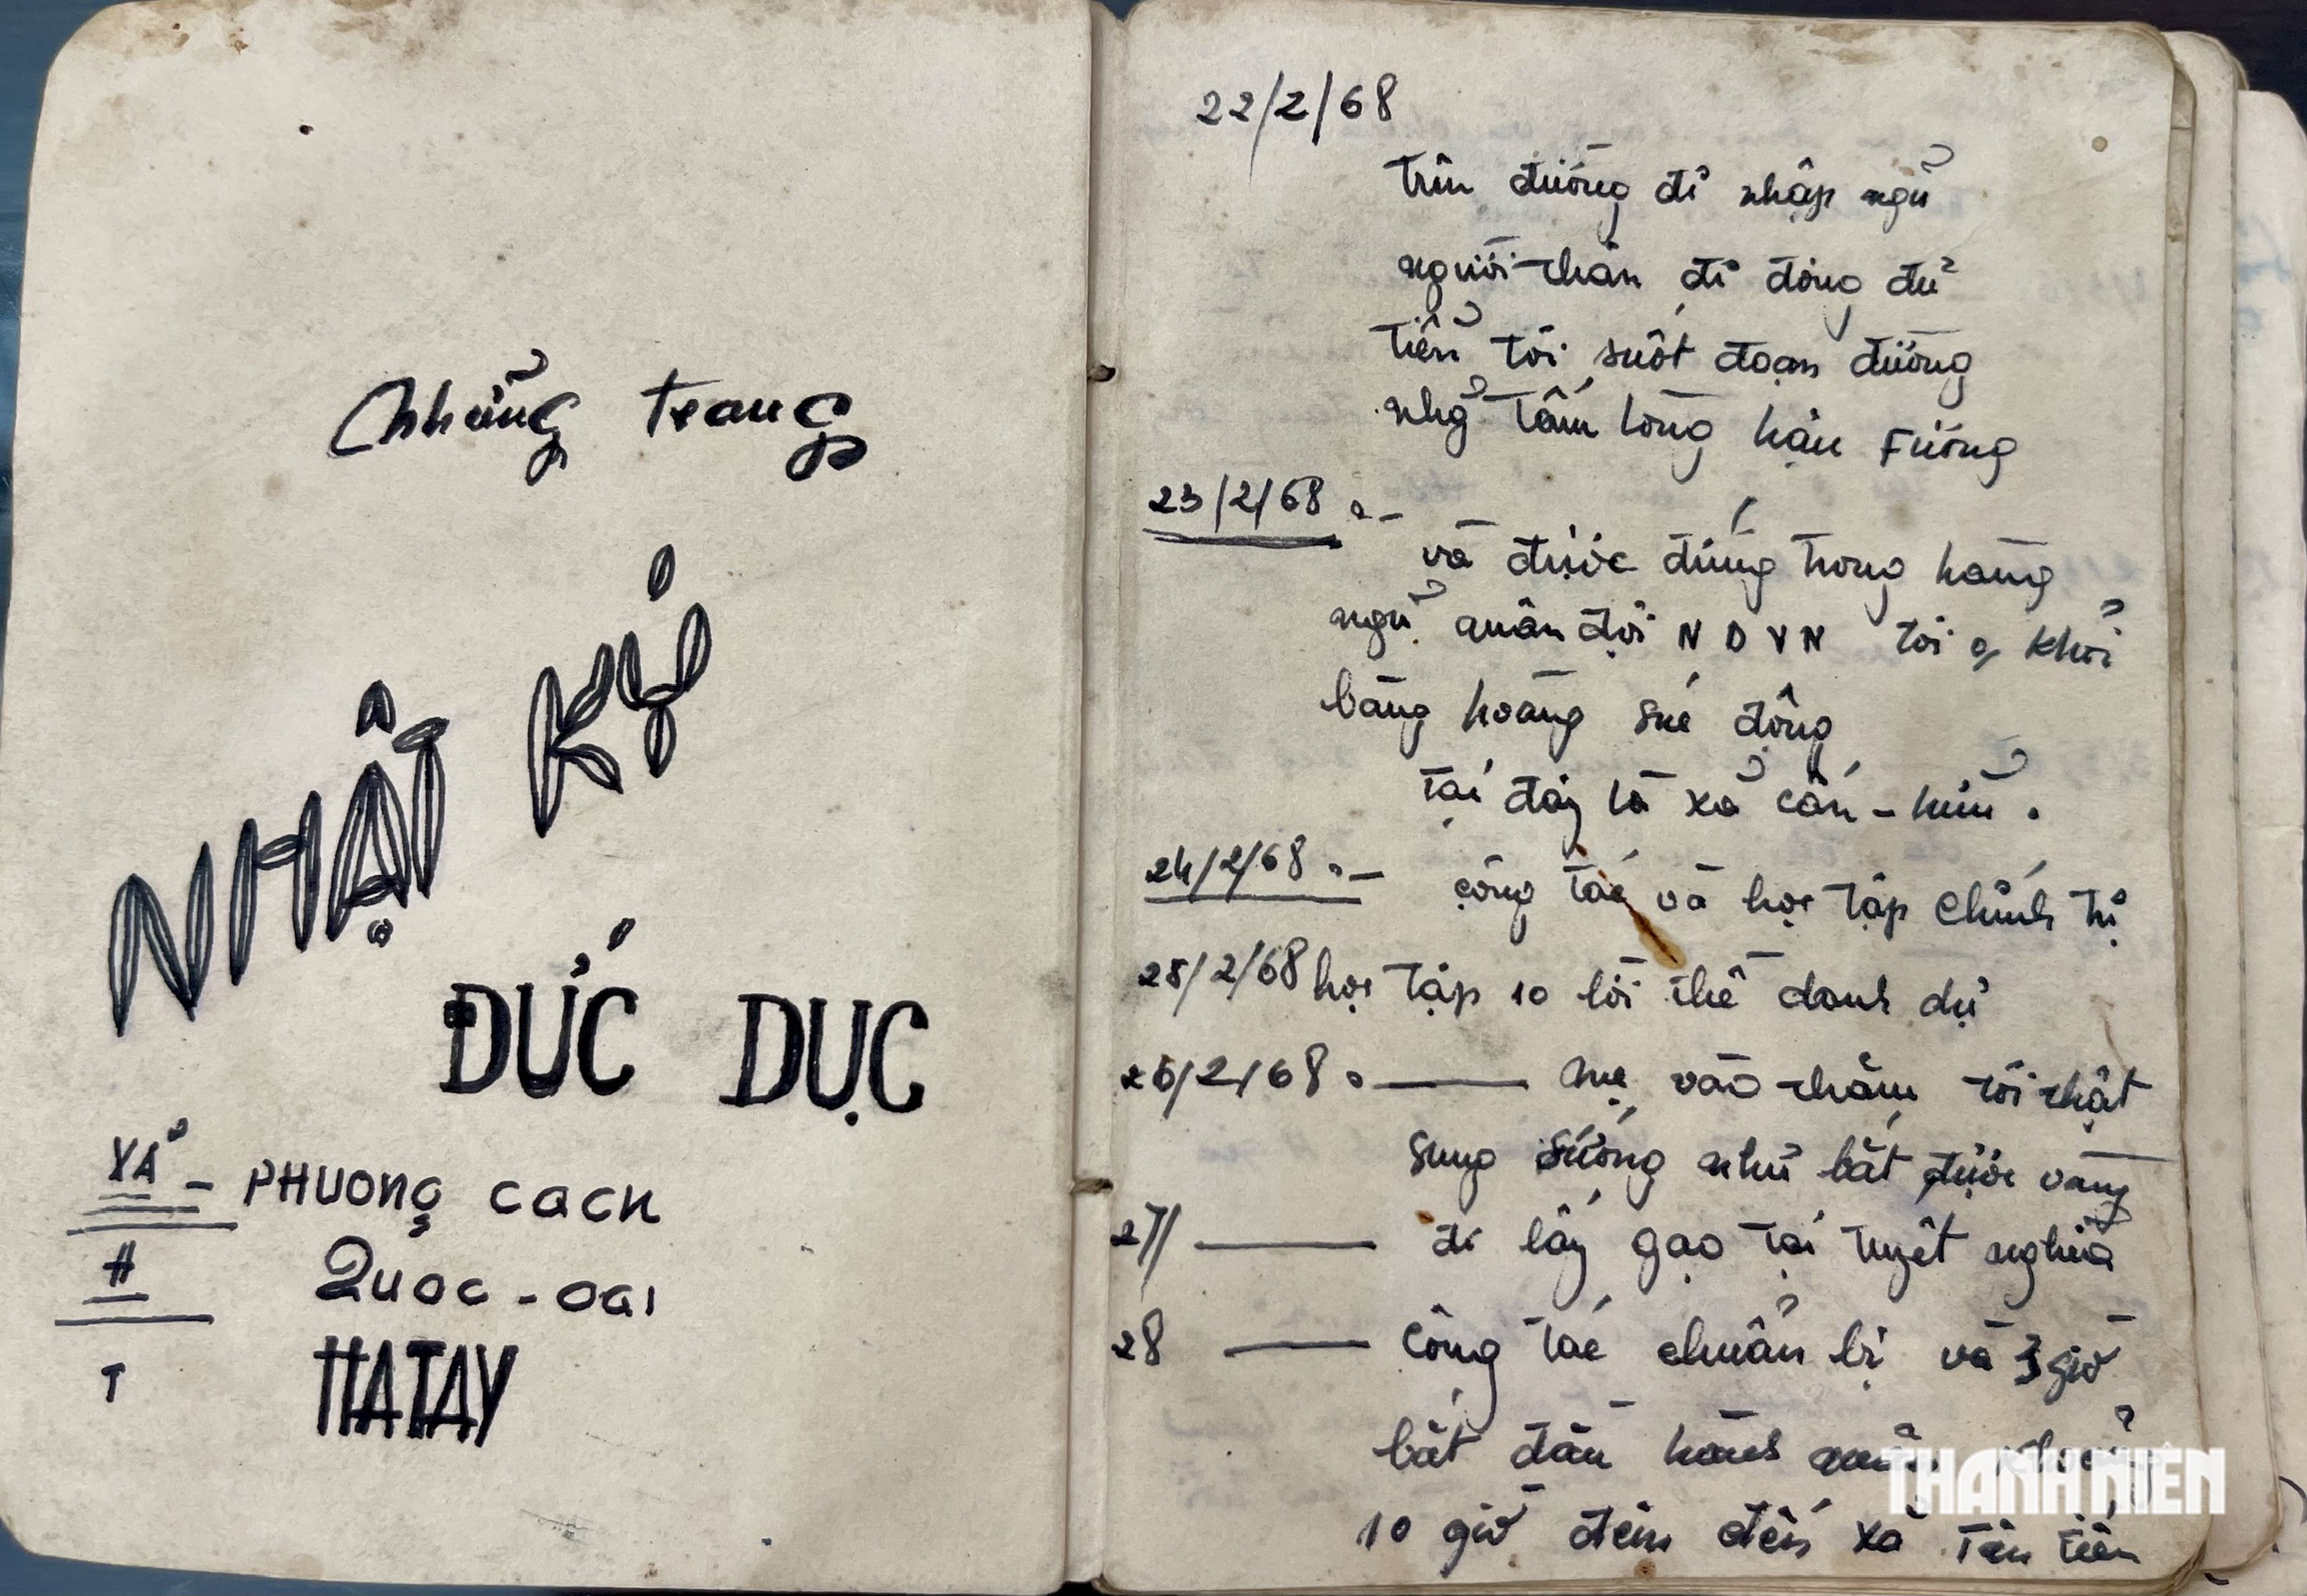 Những trang
NHẬT KÝ
ĐỨC DỤC
XÃ - PHUONG CACH
H QUOC - OAI
T HATAY
22/2/68
Trên đường đi nhập ngũ
người thân đi đông đủ
tiễn tôi suốt đoạn đường
nhg tấm lòng hậu Fương
23/2/68 :-
và được đứng trong hàng
ngũ quân đội N D V N tôi o/ khỏi
bàng hoàng súc động
Tại đây là xã cấn - hữu .
24/2/68 :- công tác và học tập chính trị
25/2/68 học tập 10 lời thề danh dự
26/2/68 :— mẹ vào thăm tôi thật
sung sướng như bắt được vàng
27/ — đi lấy gạo tại tuyết nghĩa
28 — công tác chuẩn bị và 3 giờ
bắt đầu hành quân
10 giờ đêm đến xã Tân tiến
THANH NIÊN